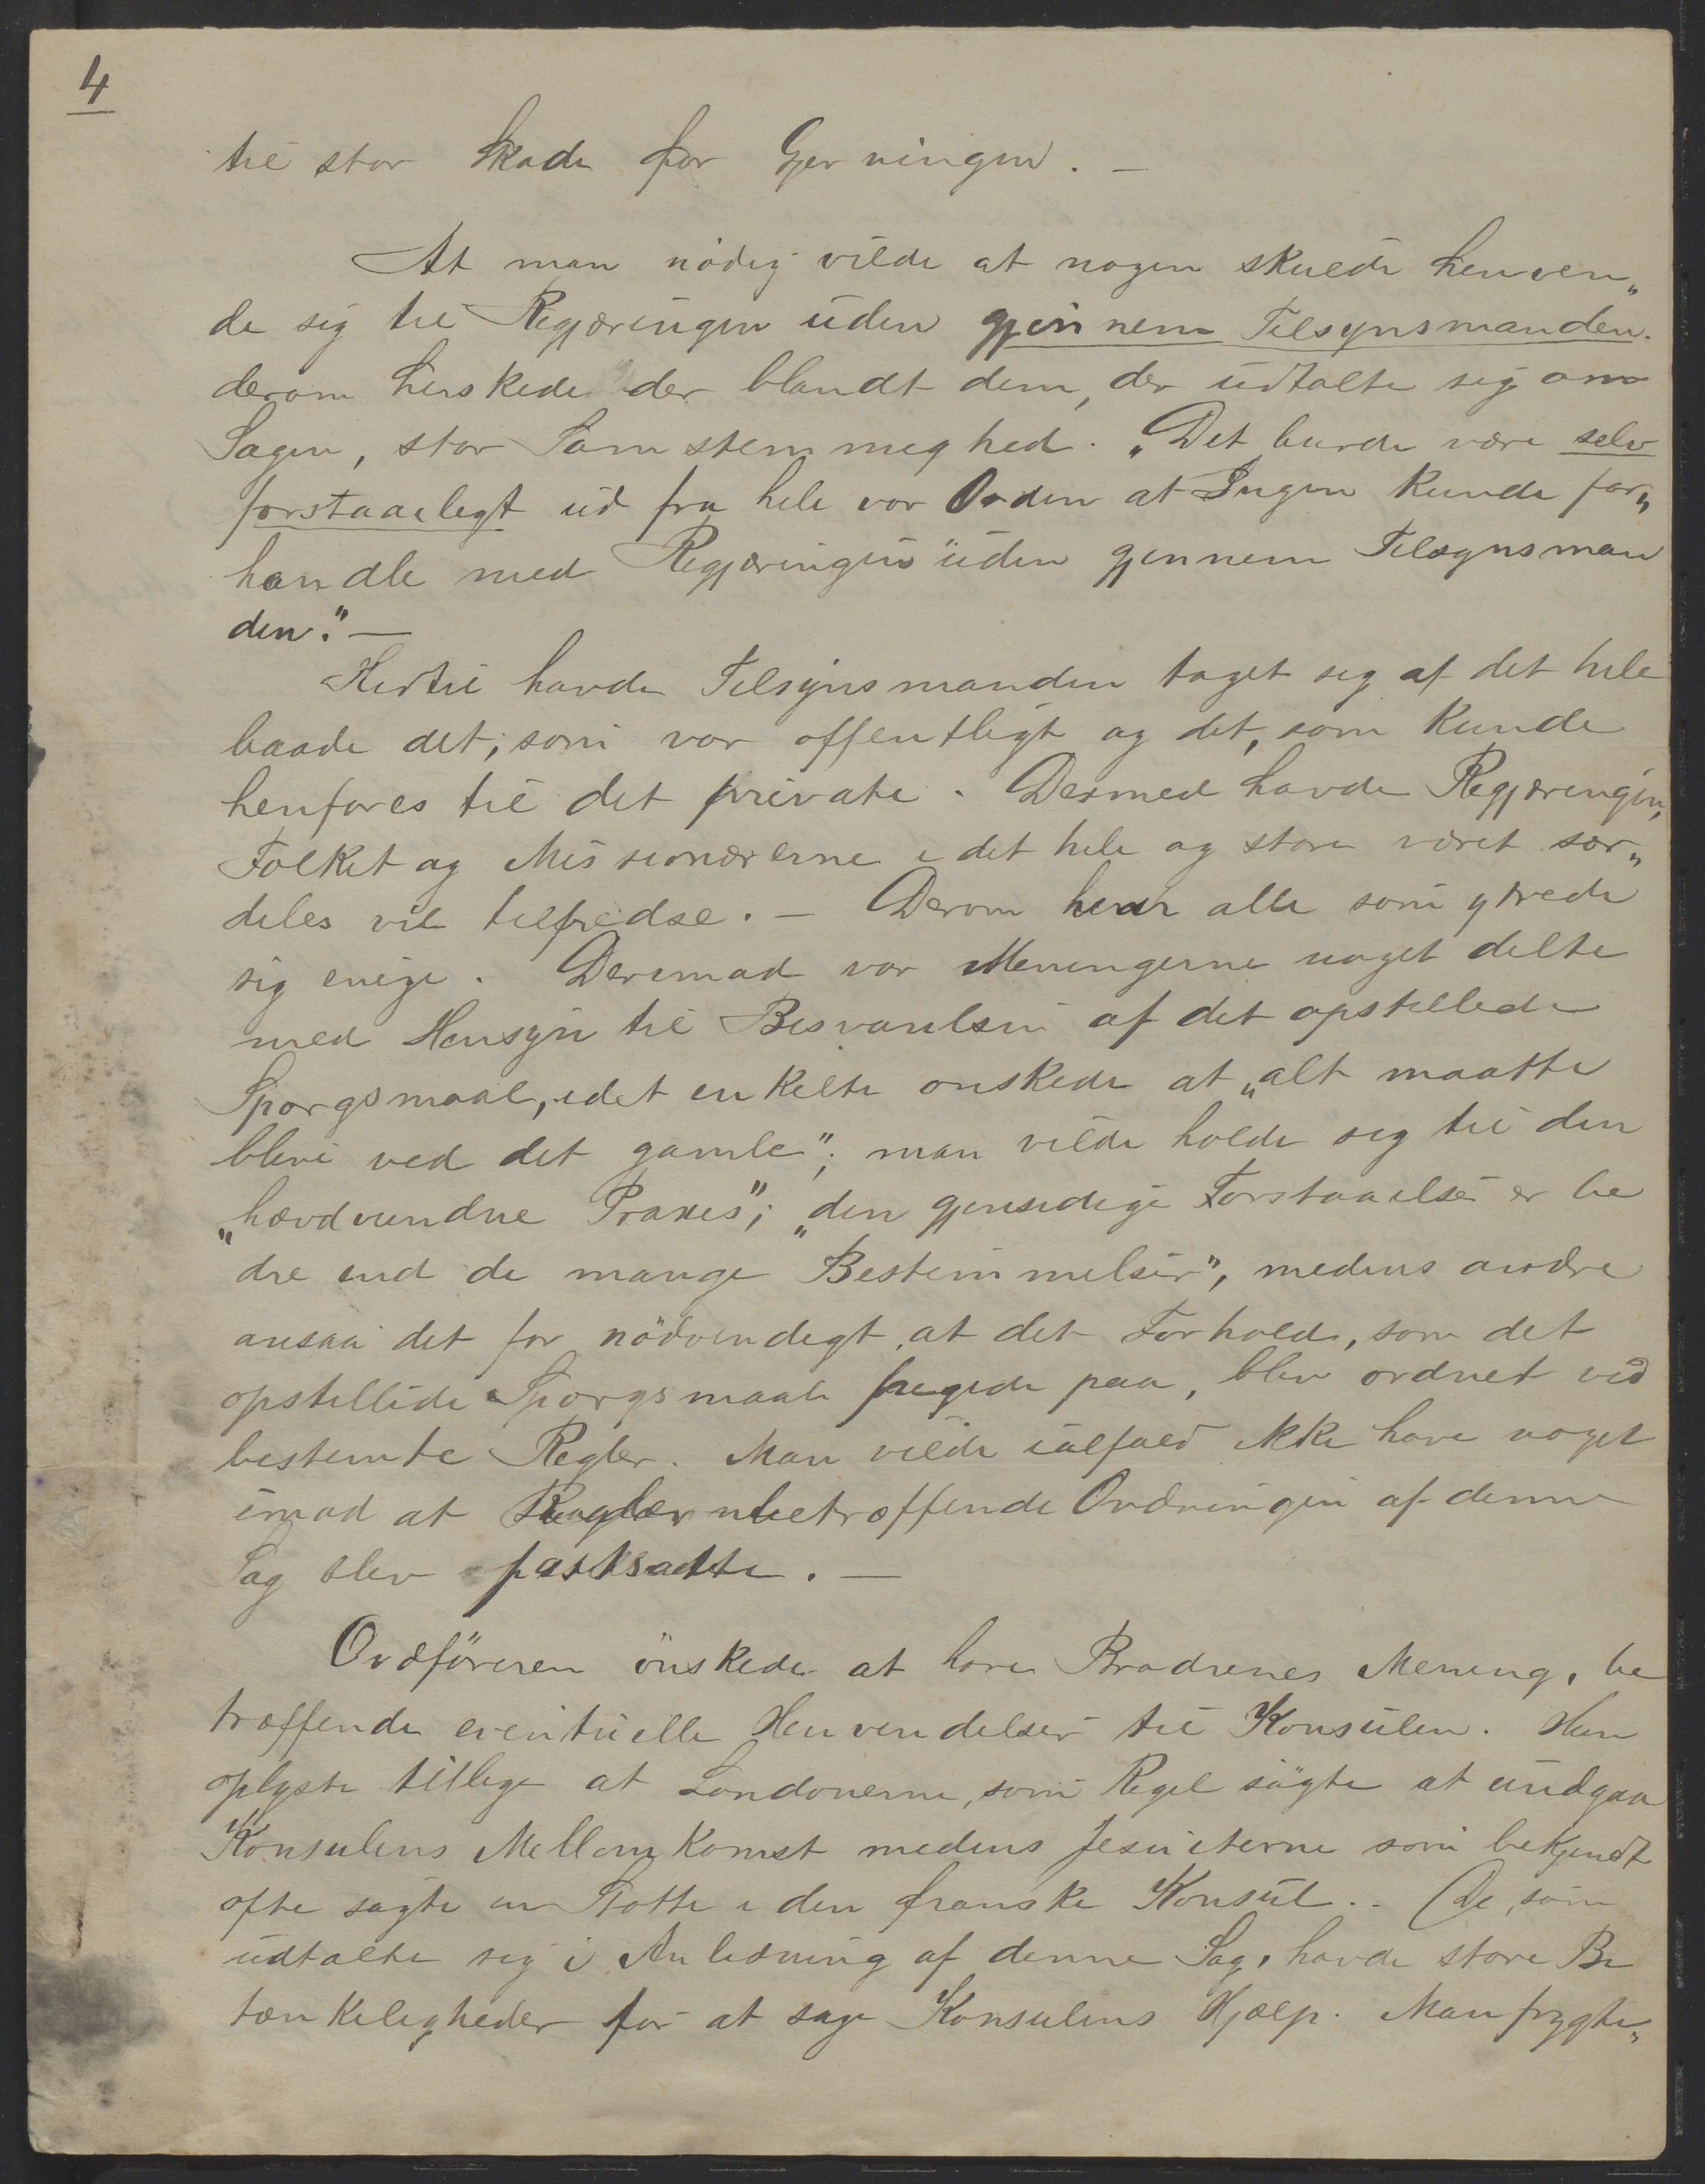 4
til stor Skade for Gjerningen. —
At man nödig vilde at nogen skulde henven„
de sig til Regjæringen uden gjennem Tilsynsmanden.
derom herskede der blandt dem, der udtalte sig om
Sagen, stor Samstemmighed. „Det burde være selv
forstaaeligt ud fra hele vor Orden at Ingen kunde for„
handle med Regjæringen uden gjennem Tilsynsman
den." —
Hidtil havde Tilsynsmanden taget sig af det hele
baade det, som var offentligt og det, som kunde
henføres til det private. Dermed havde Regjæringen,
Folket og Missionærerne i det hele og store været sær„
deles vel tilfredse. — Derom var alle som ytrede
sig enige. Derimod var Meningerne noget delte
med Hensyn til Besvarelsen af det opstillede
Spørgsmaal, idet enkelte ønskede at „alt maatte
blive ved det gamle"; man vilde holde sig til den
„hævdvundne Praxis"; „den gjensidige Forstaaelse er be
dre end de mange Bestemmelser", medens andre
ansaa det for nödvendigt at det Forhold, som det
opstillede Spørgsmaal pegede paa, blev ordnet ved
bestemte Regler. Man vilde ialfald ikke have noget
imod at Regler betræffende Ordningen af denne
Sag blev fastsatte. —
Ordföreren önskede at høre Brødrenes Mening, be
træffende eventuelle Henvendelser til Konsulen. Han
oplyste tillige at Londonerne, som Regel sögte at undgaa
Konsulens Mellomkomst medens Jesuiterne som bekjendt
ofte søgte en Støtte i den franske Konsul. — De, som
udtalte sig i Anledning af denne Sag, havde store Be
tænkeligheder for at søge Konsulens Hjælp. Man frygte„